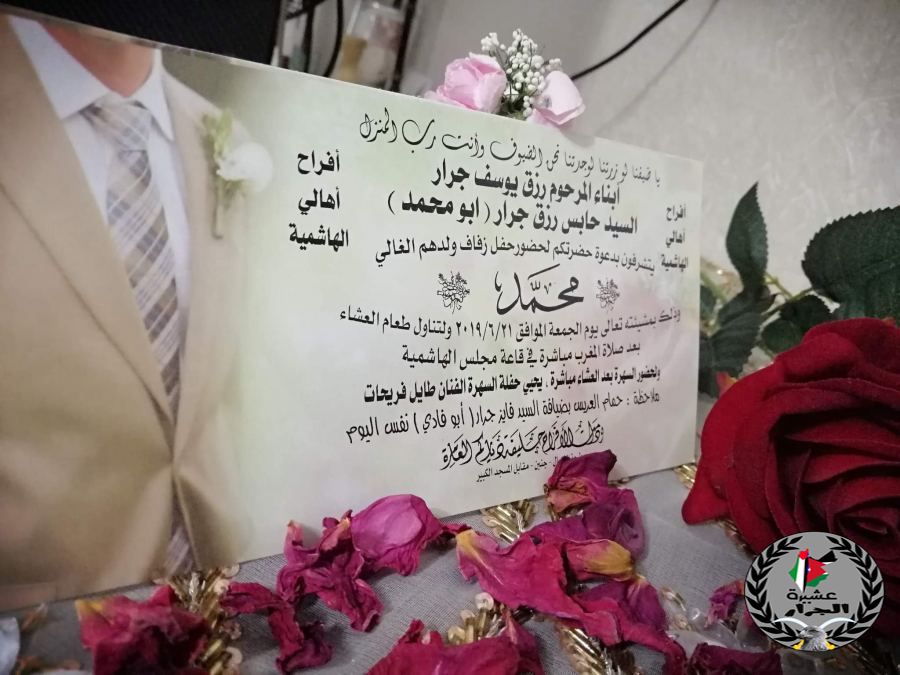 يا ضيفنا لو زرتنا لوجدتنا نحن الضيوف وأنت رب المنزل
أبناء المرحوم رزق يوسف جرار
السيد حابس رزق جرار ( ابو محمد )
أفراح
أهالي
الهاشمية
أفراح
أهالي
الهاشمية
يتشرفون بدعوة حضرتكم لحضور حفل زفاف ولدهم الغالي
محمد
وذلك بمشيئته تعالى يوم الجمعة الموافق ٢٠١٩/٦/٢١ ولتناول طعام العشاء
بعد صلاة المغرب مباشرة في قاعة مجلس الهاشمية
ولحضور السهرة بعد العشاء مباشرة . يحيي حفلة السهرة الفنان طايل فريحات
ملاحظة : حمام العريس بضيافة السيد فايز جرار ( أبو فادي ) نفس اليوم
ودامت الأفراح حليفة دياركم العامرة
جنين - مقابل المسجد الكبير
عشيرة
الجرار